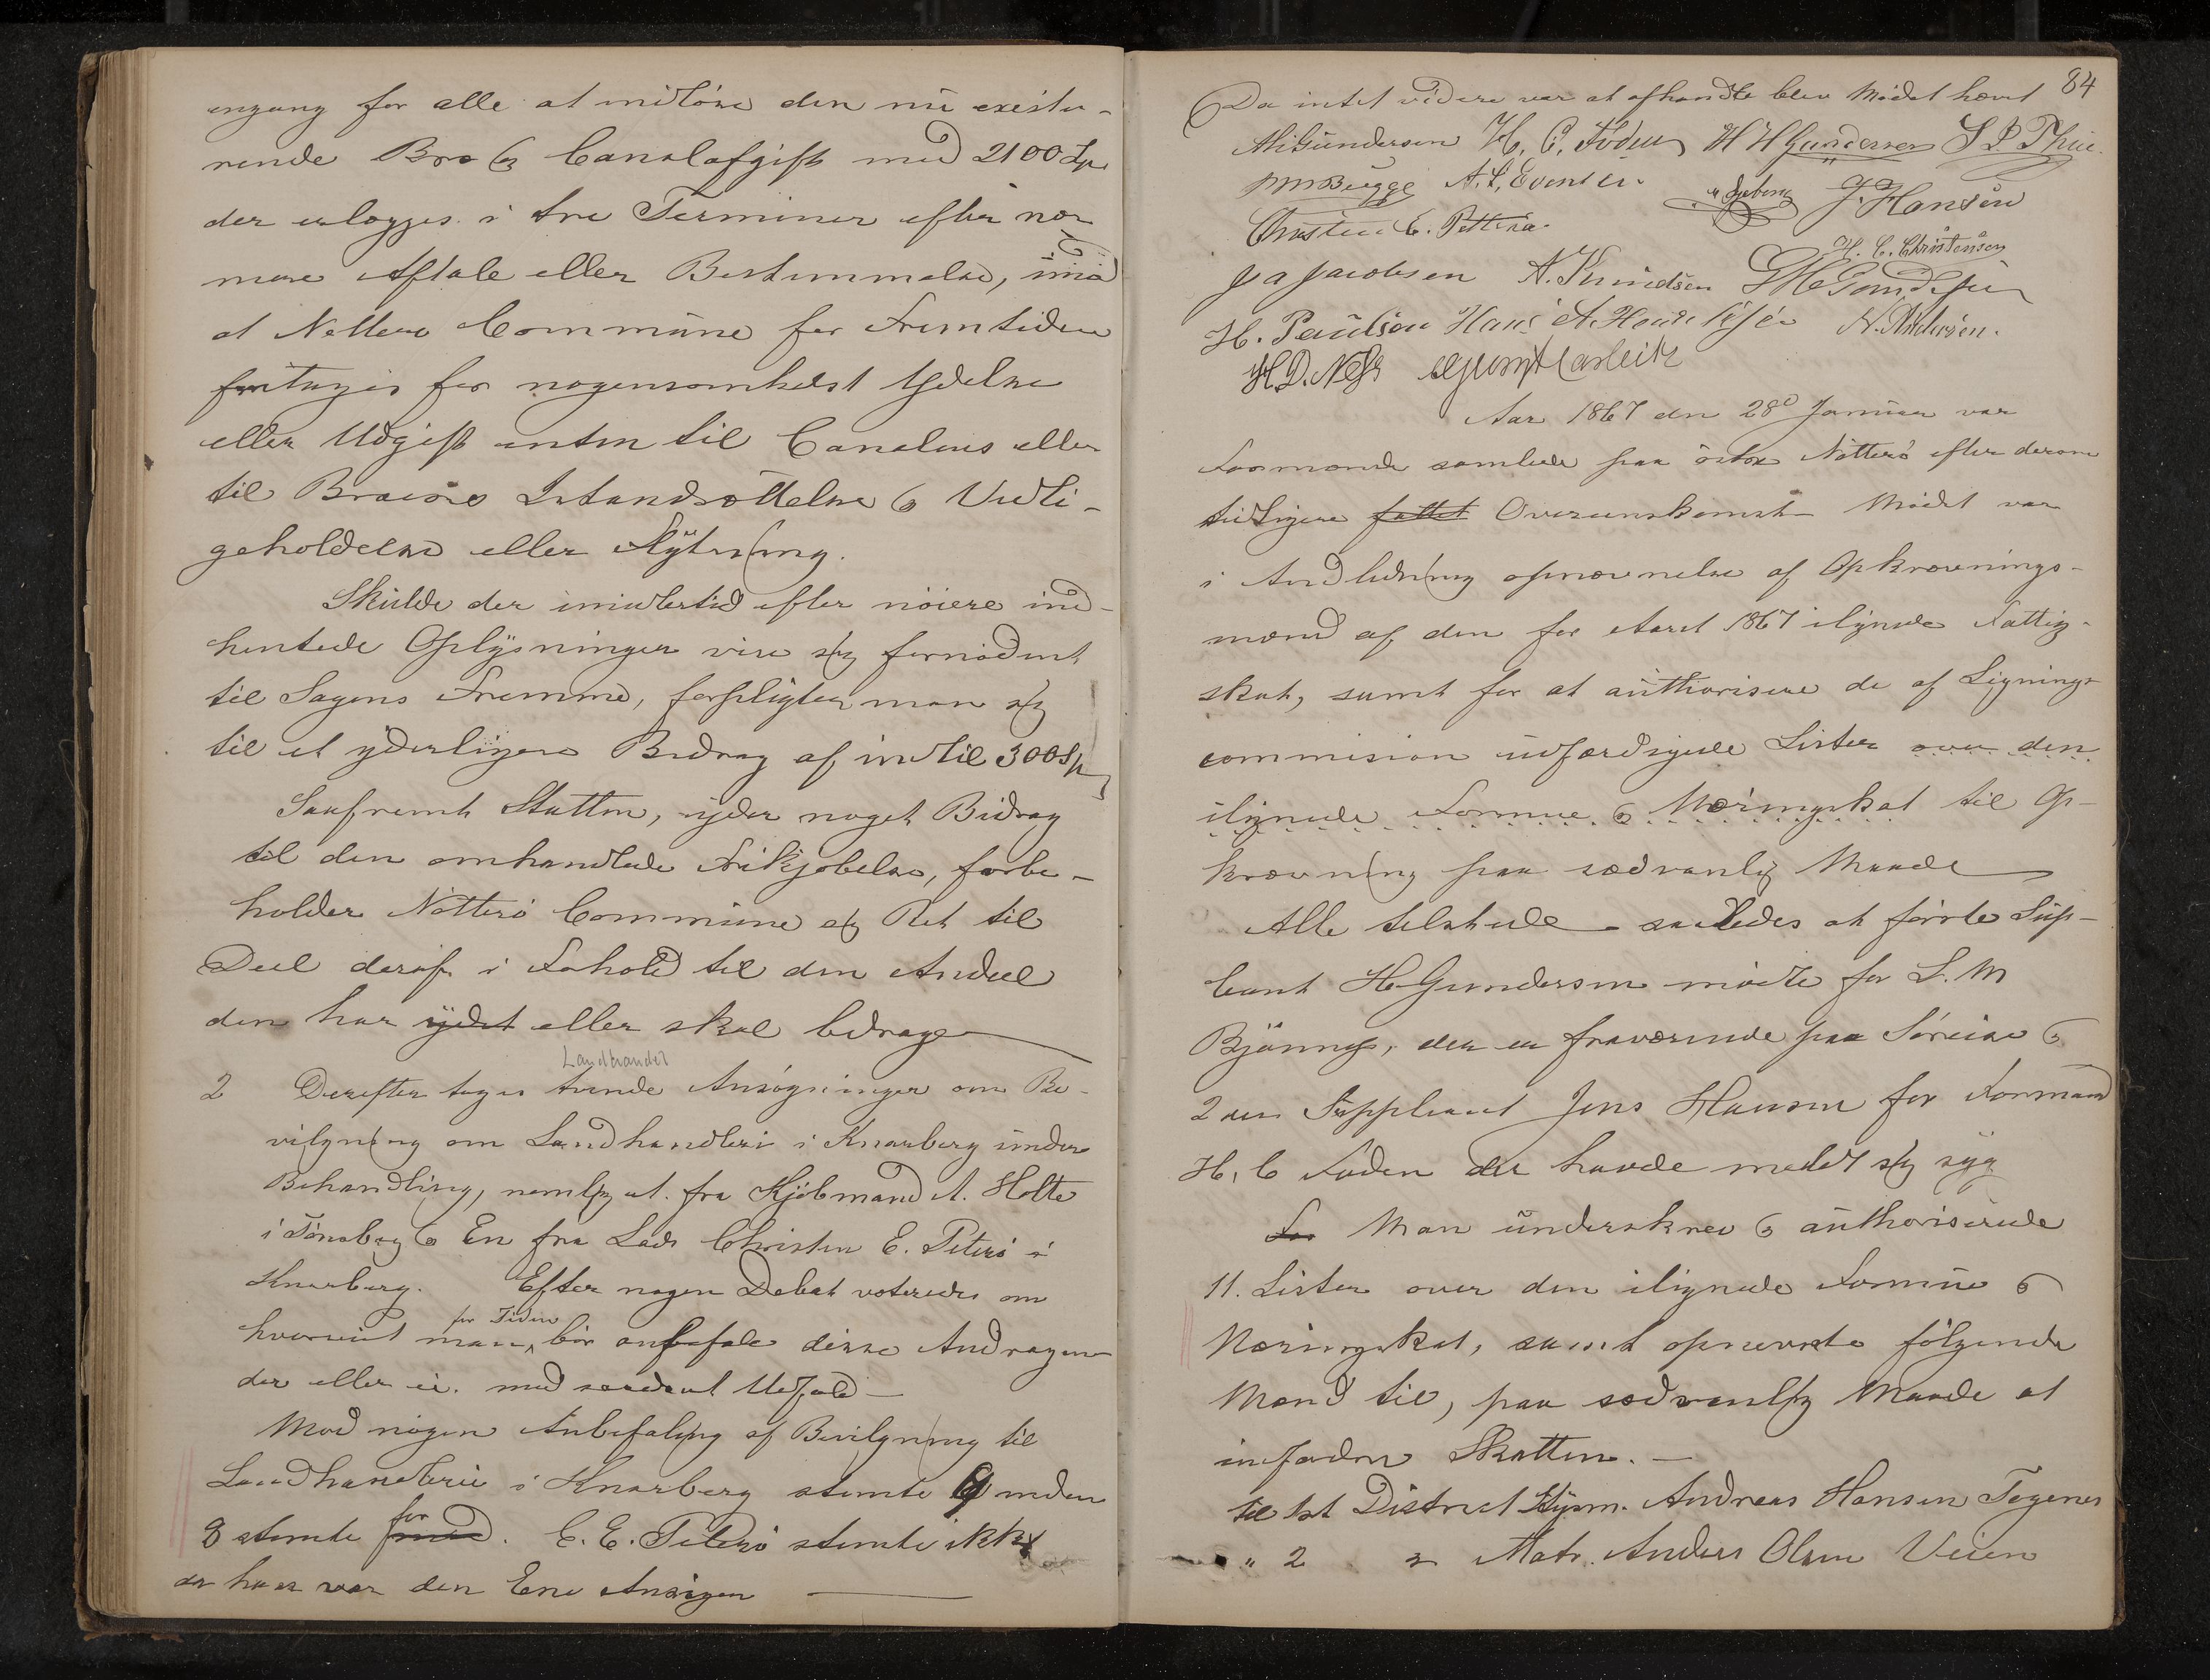 engang for alle at indløse den nu existe-
rende Bro & Canalafgift med 2100 Spd
der erlægges i tre Terminer efter nær
mere Aftale eller Bestemmelse, imod
at Nøtterø Commune for Fremtiden
fritages for nogensomhelst Ydelse
eller Udgift enten til Canalens eller
til Broens Istandsættelse & Vedli-
geholdelse eller Nybygning.
Skulde der imidlertid efter nøiere ind-
hentede Oplysninger vise sig fornødent
til Sagens Fremme, forpligter man sig
til et yderligere Bidrag af indtil 300 Sp
Saafremt Statten, yder noget Bidrag
til den omhandlede Frikjøbelse, forbe-
holder Nøtterø Commune sig Ret til
Deel deraf i Fohold til den Andeel
den har ydet eller skal bidrage
Landhandel
2 Derefter toges tvende Ansøgninger om Be-
vilgning om Landhandleri i Knarberg under
Behandling, nemlig et. fra Kjøbmand A. Holte
i Tønsberg & En fra Lods Christen E. Peterø i
Knarberg. Efter nogen Debat voteredes om
hvorvidt man for Tiden bør anbefale disse Andragen
der eller ei. med saadant Udfald -
Mod nogen Anbefaling af Bevilgning til
Landhandleri i Knarberg stemte 9 meden
8 stemte for med. C. E. Peterø stemte ikke
da han var den Ene Ansøgen
84
Da intet videre var at afhandle blev Mødet hævet
M Gundersen H. C. Foden H H Gundersen S P Thue.
M Bugge A. L. Evensen J. Hansen
Christen E. Petterø.
H. C. Christensen
J A Jacobsen A. Knudsen
H. Paulson Hans A. N. Andersen.
H. D. Ness
Aar 1867 den 28de Januar var
Formænde samlede paa østre Nøtterø efter derom
tidligere fattet Overeenskomst Mødet var
i Andledning opnævnelse af Opkrævnings-
mænd af den for Aaret 1867 ilignede Fattig-
skat, samt for at authorisere de af Lignings
commision udfærdigede Lister over den
ilignede Formue & Næringskat til Op-
krævning paa sædvanlig Maade
Alle tilstede - saaledes at første Sup-
leant H Gundersen mødte for L. M
Bjønnes, der er fraværende paa Søreise &
2den Suppleant Jens Hansen for Formand
H, C Foden der havde meldt sig syg
For Man underskrev & authoriserede
11. Lister over den ilignede Formue &
Næringskat, samt opnævnte følgende
Mænd til, paa sædvanlig Maade at
indfordre Skatten. -
til 1st District Husm. Andreas Hansen Tegenes
" 2 " Matr. Anders Olsen Veien